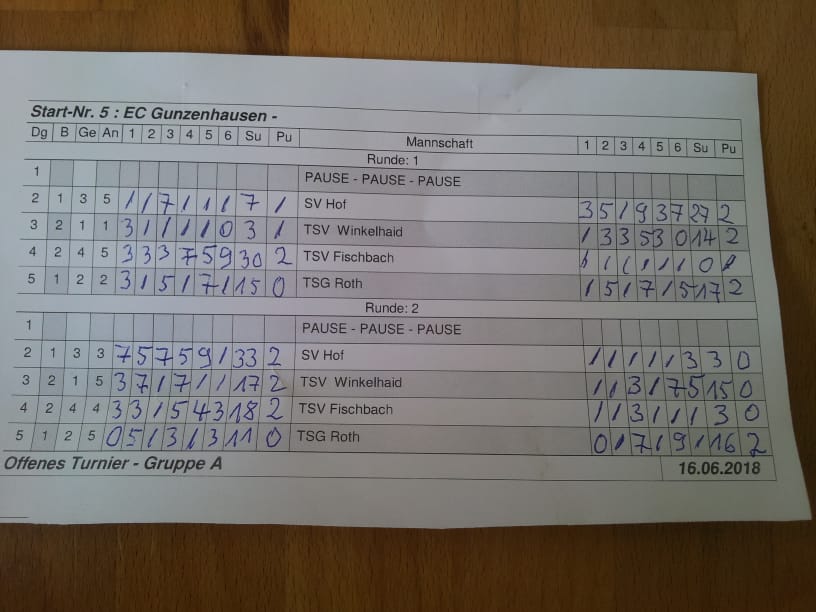 Start-Nr. 5 : EC Gunzenhausen -
Dg B Ge An 1 2 3 4 5 6 Su Pu Mannschaft 1 2 3 4 5 6 Su Pu
Runde: 1
1 PAUSE - PAUSE - PAUSE
2 1 3 5 / / 7 / / / 7 / SV Hof 3 5 / 9 3 7 27 2
3 2 1 1 3 / / / / 0 3 / TSV Winkelhaid / 3 3 5 3 0 14 2
4 2 4 5 3 3 3 7 5 9 30 2 TSV Fischbach / / / / / / 0
5 1 2 2 3 / 5 / 7 / 15 0 TSG Roth / 5 / 7 / 5 17 2
Runde: 2
1 PAUSE - PAUSE - PAUSE
2 1 3 3 7 5 7 5 9 / 33 2 SV Hof / / / / / 3 3 0
3 2 1 5 3 7 / 7 / / 17 2 TSV Winkelhaid / / 3 / 7 5 15 0
4 2 4 4 3 3 / 5 4 3 18 2 TSV Fischbach / / 3 / / / 3 0
5 1 2 5 0 5 / 3 / 3 11 0 TSG Roth 0 / 7 / 9 / 16 2
Offenes Turnier - Gruppe A 16.06.2018